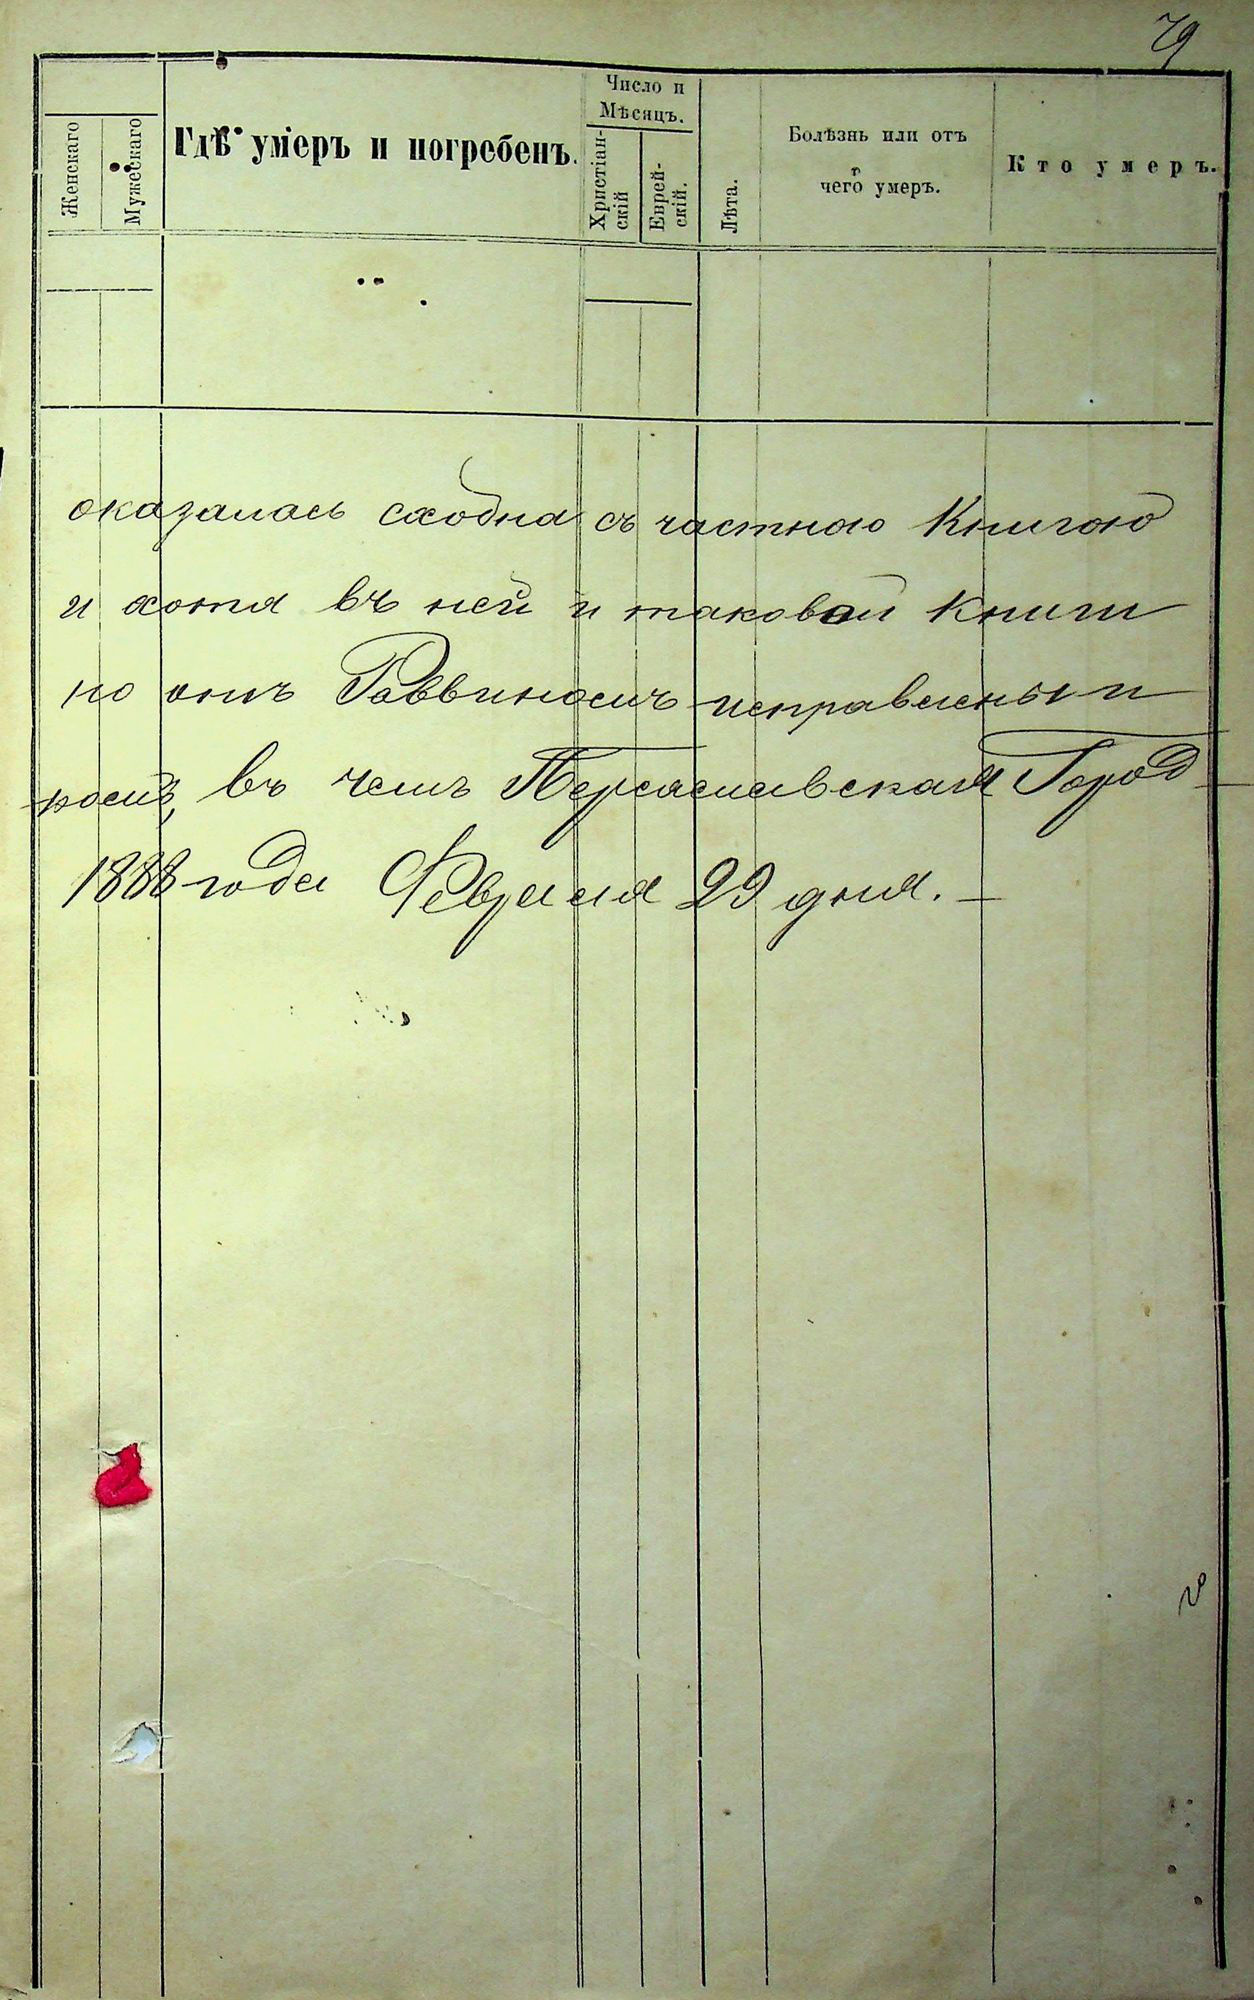 79
Женскаго
Мужескаго
Гдѣ умеръ и погребенъ.
Число и
Мѣсяцъ.
Христіан-
скій
Еврей-
скій.
Лѣта.
Болѣзнь или отъ
чего умеръ.
Кто умеръ.
оказалась сходна съ частною Книгою
и хотя въ ней и таковой книги
но онъ Раввиномъ
въ чемъ Переяславская Город
1888 года Февраля 29 дня. —